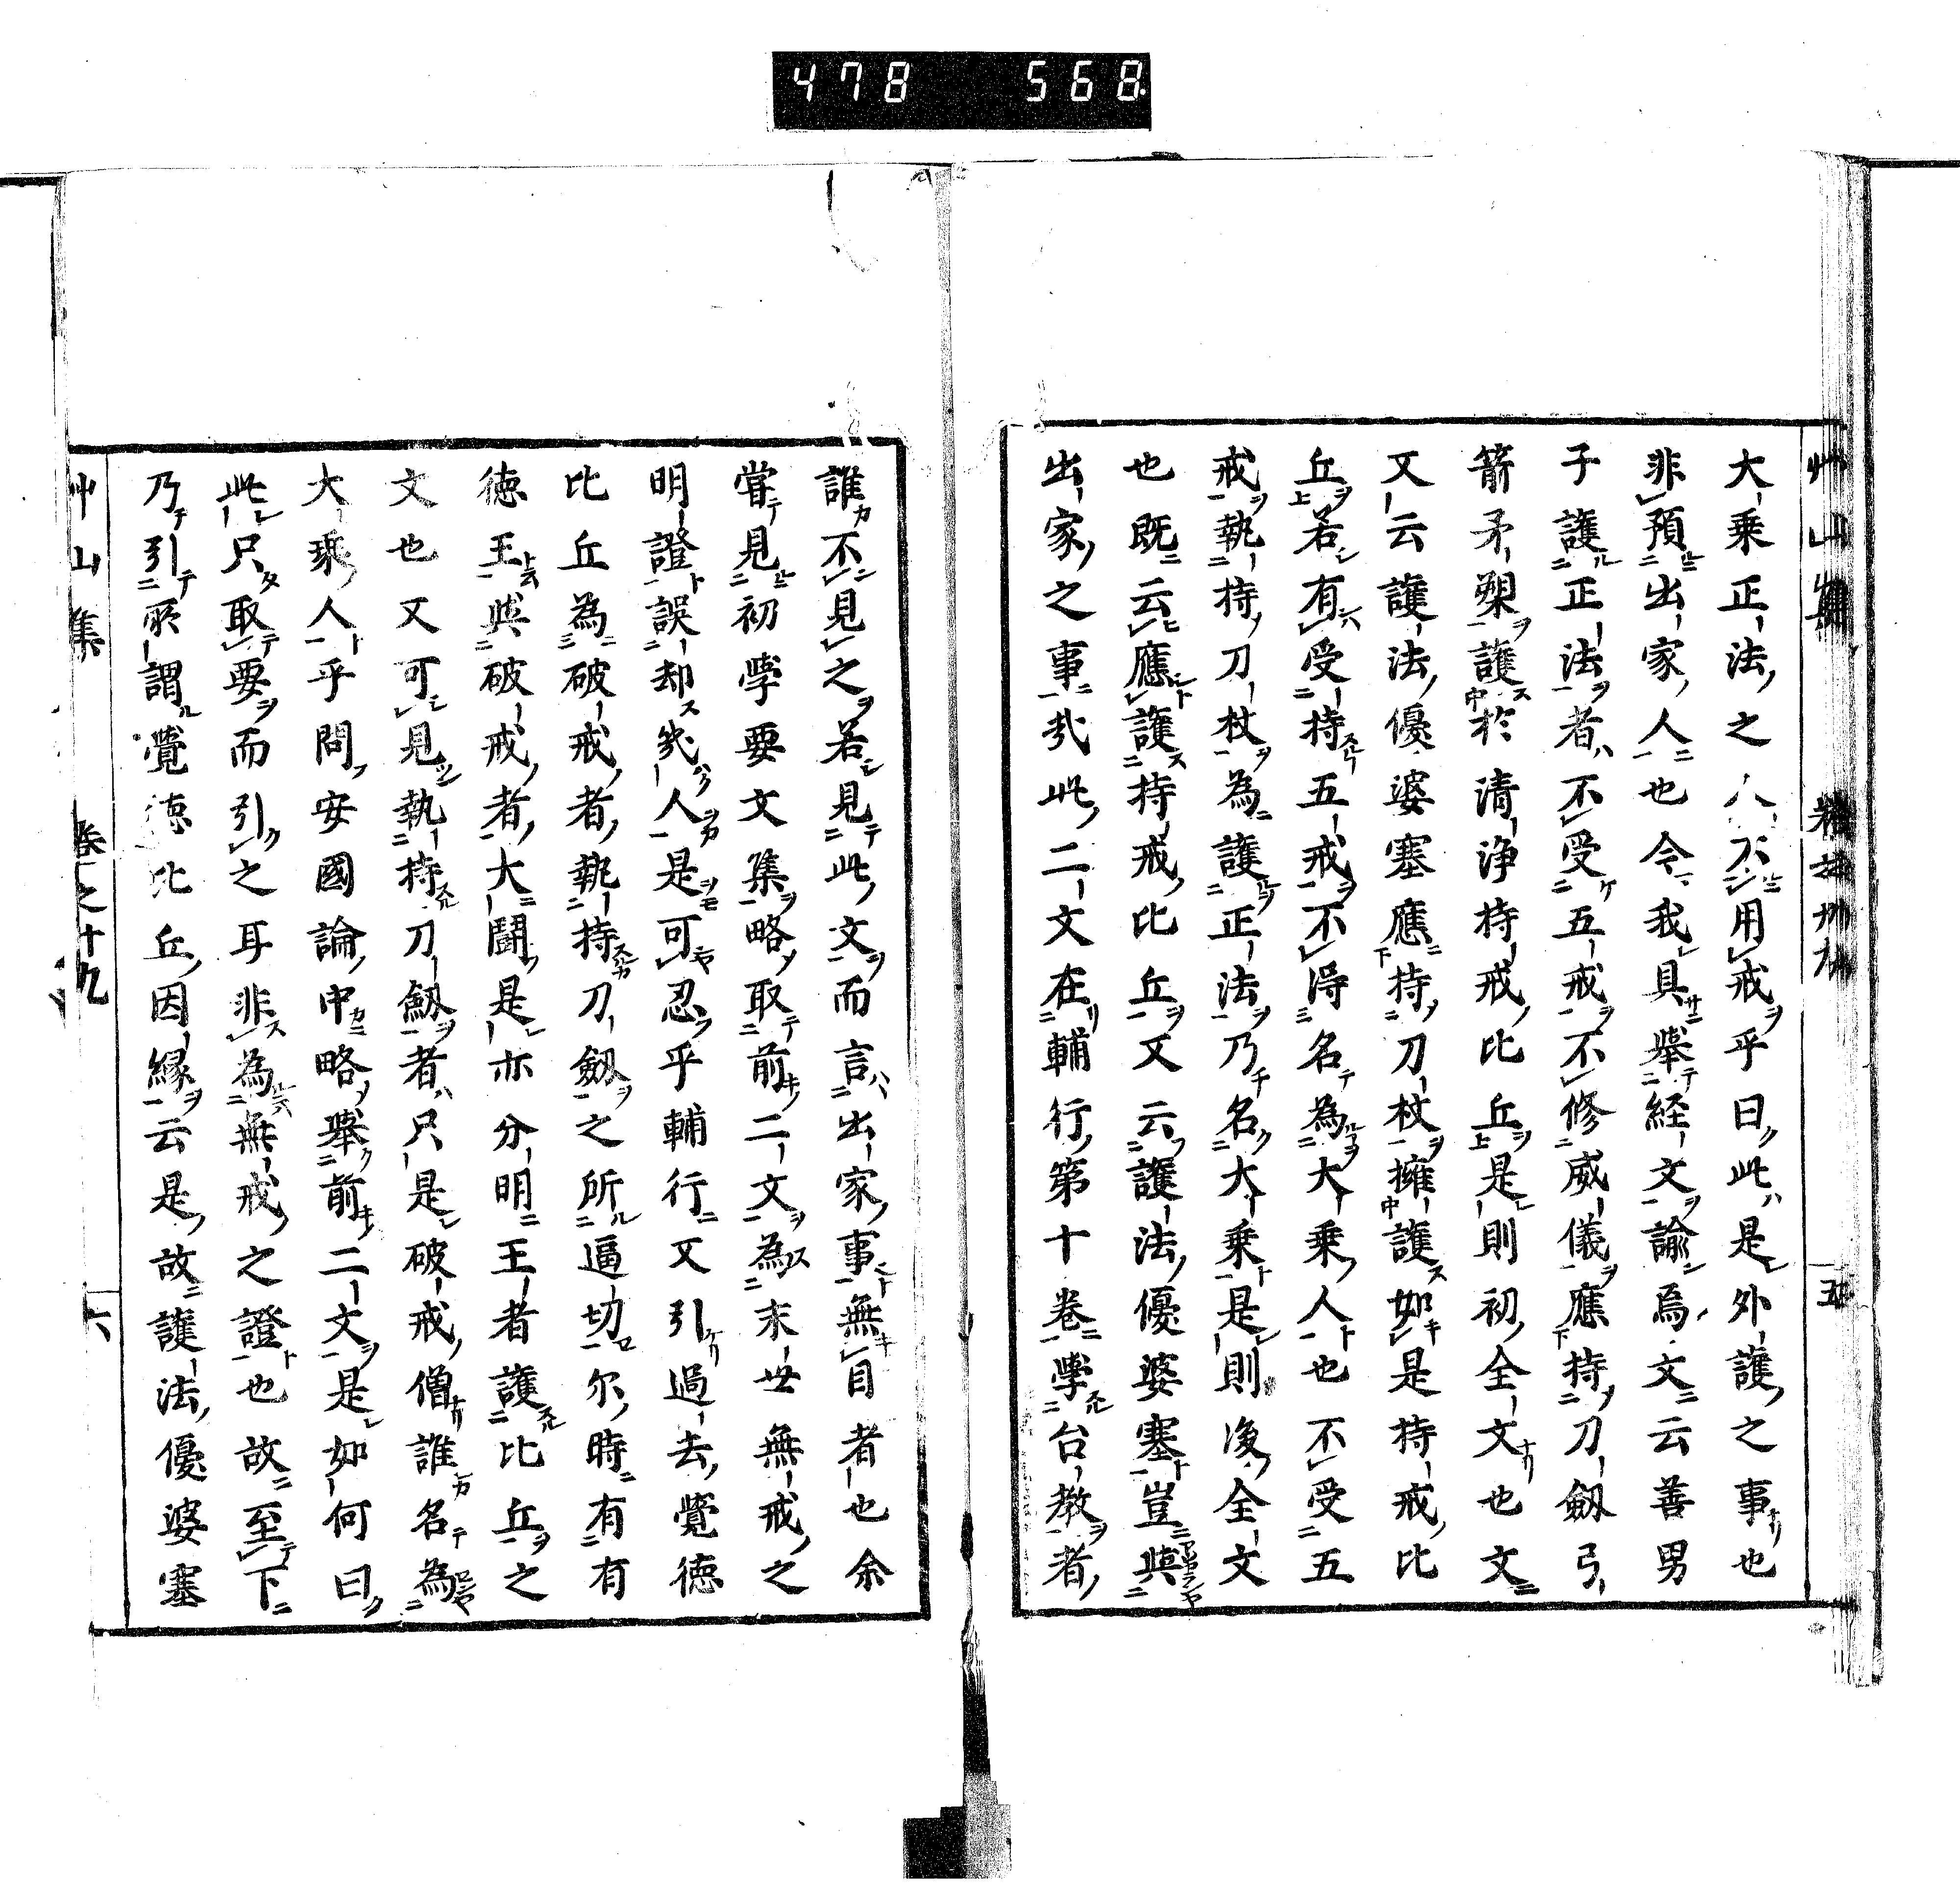 478 568
大乗正法之人不用戒乎曰此是外護之事也
非預出家人也今我具舉経文諭焉文云善男
子護正法者不受五戒不修威儀應持刀劒弓
箭矛槊護於清浄持戒比丘是則初全文也文
又云護法優婆塞應持刀杖擁護如是持戒比
丘若有受持五戒不得名為大乗人也不受五
戒執持刀杖為護正法乃名大乗是則後全文
也既云應護持戒比丘又云護法優婆塞豈與
出家之事哉此二文在輔行第十卷學台教者
五
誰不見之若見此文而言出家事無目者也余
嘗見初學要文集略取前二文為末世無戒之
明證誤却幾人是可忍乎輔行又引過去覺徳
比丘為破戒者執持刀劒之所逼切尔時有有
徳王與破戒者大鬪是亦分明王者護比丘之
文也又可見執持刀劒者只是破戒僧誰名為
大乗人乎問安國論中略舉前二文是如何曰
此只取要而引之耳非為無戒之證也故至下
乃引所謂覺徳比丘因縁云是故護法優婆塞
艸山集 卷之十九 六